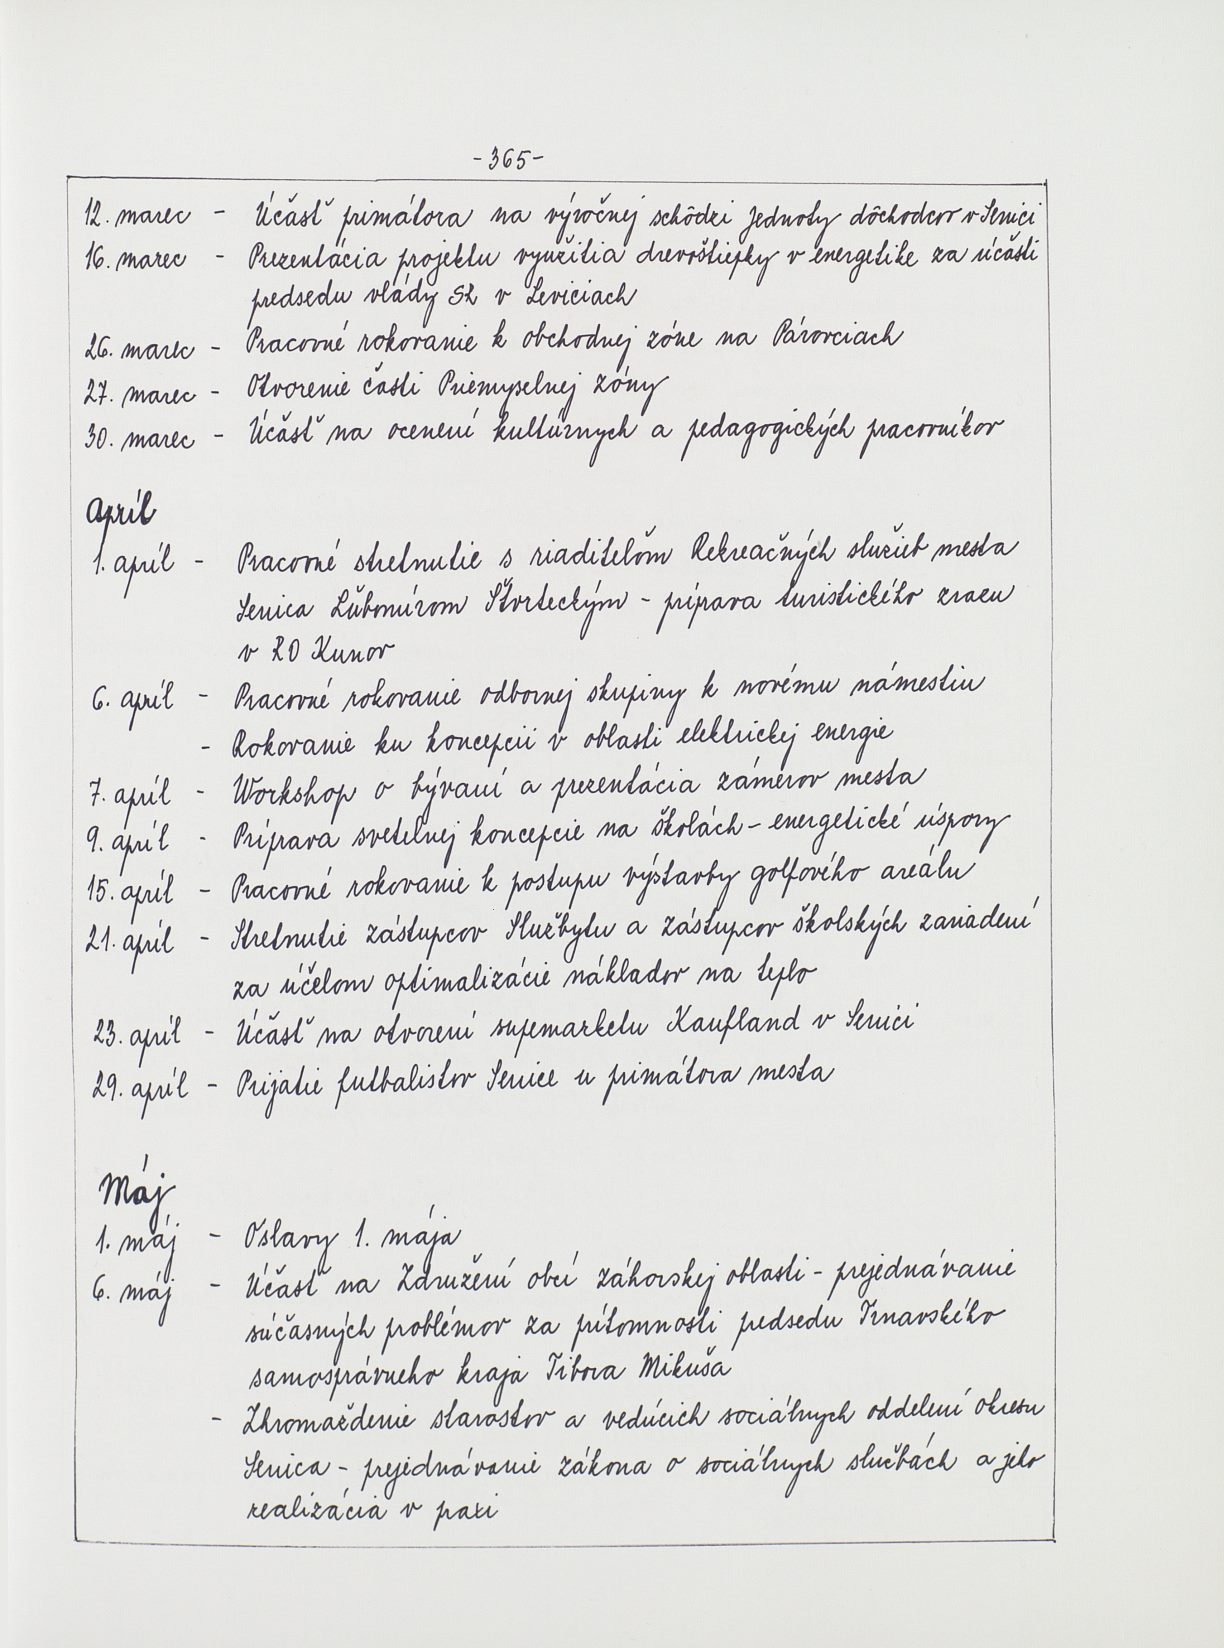 -365-
12. marec - Účasť primátora na výročnej schôdzi Jednoty dôchodcov v Senici
16. marec - Prezentácia projektu využitia drevoštiepky v energetike za účasti
predsedu vlády SR v Leviciach
26. marec - Pracovné rokovanie k obchodnej zóne na Párovciach
27. marec - Otvorenie časti Priemyselnej zóny
30. marec - Účasť na ocenení kultúrnych a pedagogických pracovníkov
Apríl
1. apríl - Pracovné stretnutie s riaditeľom Rekreačných služieb mesta
Senica Ľubomírom Štvrteckým - príprava turistického zrazu
v RO Kunov
6. apríl - Pracovné rokovanie odbornej skupiny k novému námestiu
- Rokovanie ku koncepcii v oblasti elektrickej energie
7. apríl - Workshop o bývaní a prezentácia zámerov mesta
9. apríl - Príprava svetelnej koncepcie na školách - energetické úspory
15. apríl - Pracovné rokovanie k postupu výstavby golfového areálu
21. apríl - Stretnutie zástupcov Službytu a zástupcov školských zariadení
za účelom optimalizácie nákladov na teplo
23. apríl - Účasť na otvorení supemarketu Kaufland v Senici
29. apríl - Prijatie futbalistov Senice u primátora mesta
Máj
1. máj - Oslavy 1. mája
6. máj - Účasť na Združení obcí záhorskej oblasti - prejednávanie
súčasných problémov za prítomnosti predsedu Trnavského
samosprávneho kraja Tibora Mikuša
- Zhromaždenie starostov a vedúcich sociálnych oddelení okresu
Senica - prejednávanie zákona o sociálnych službách a jeho
realizácia v praxi